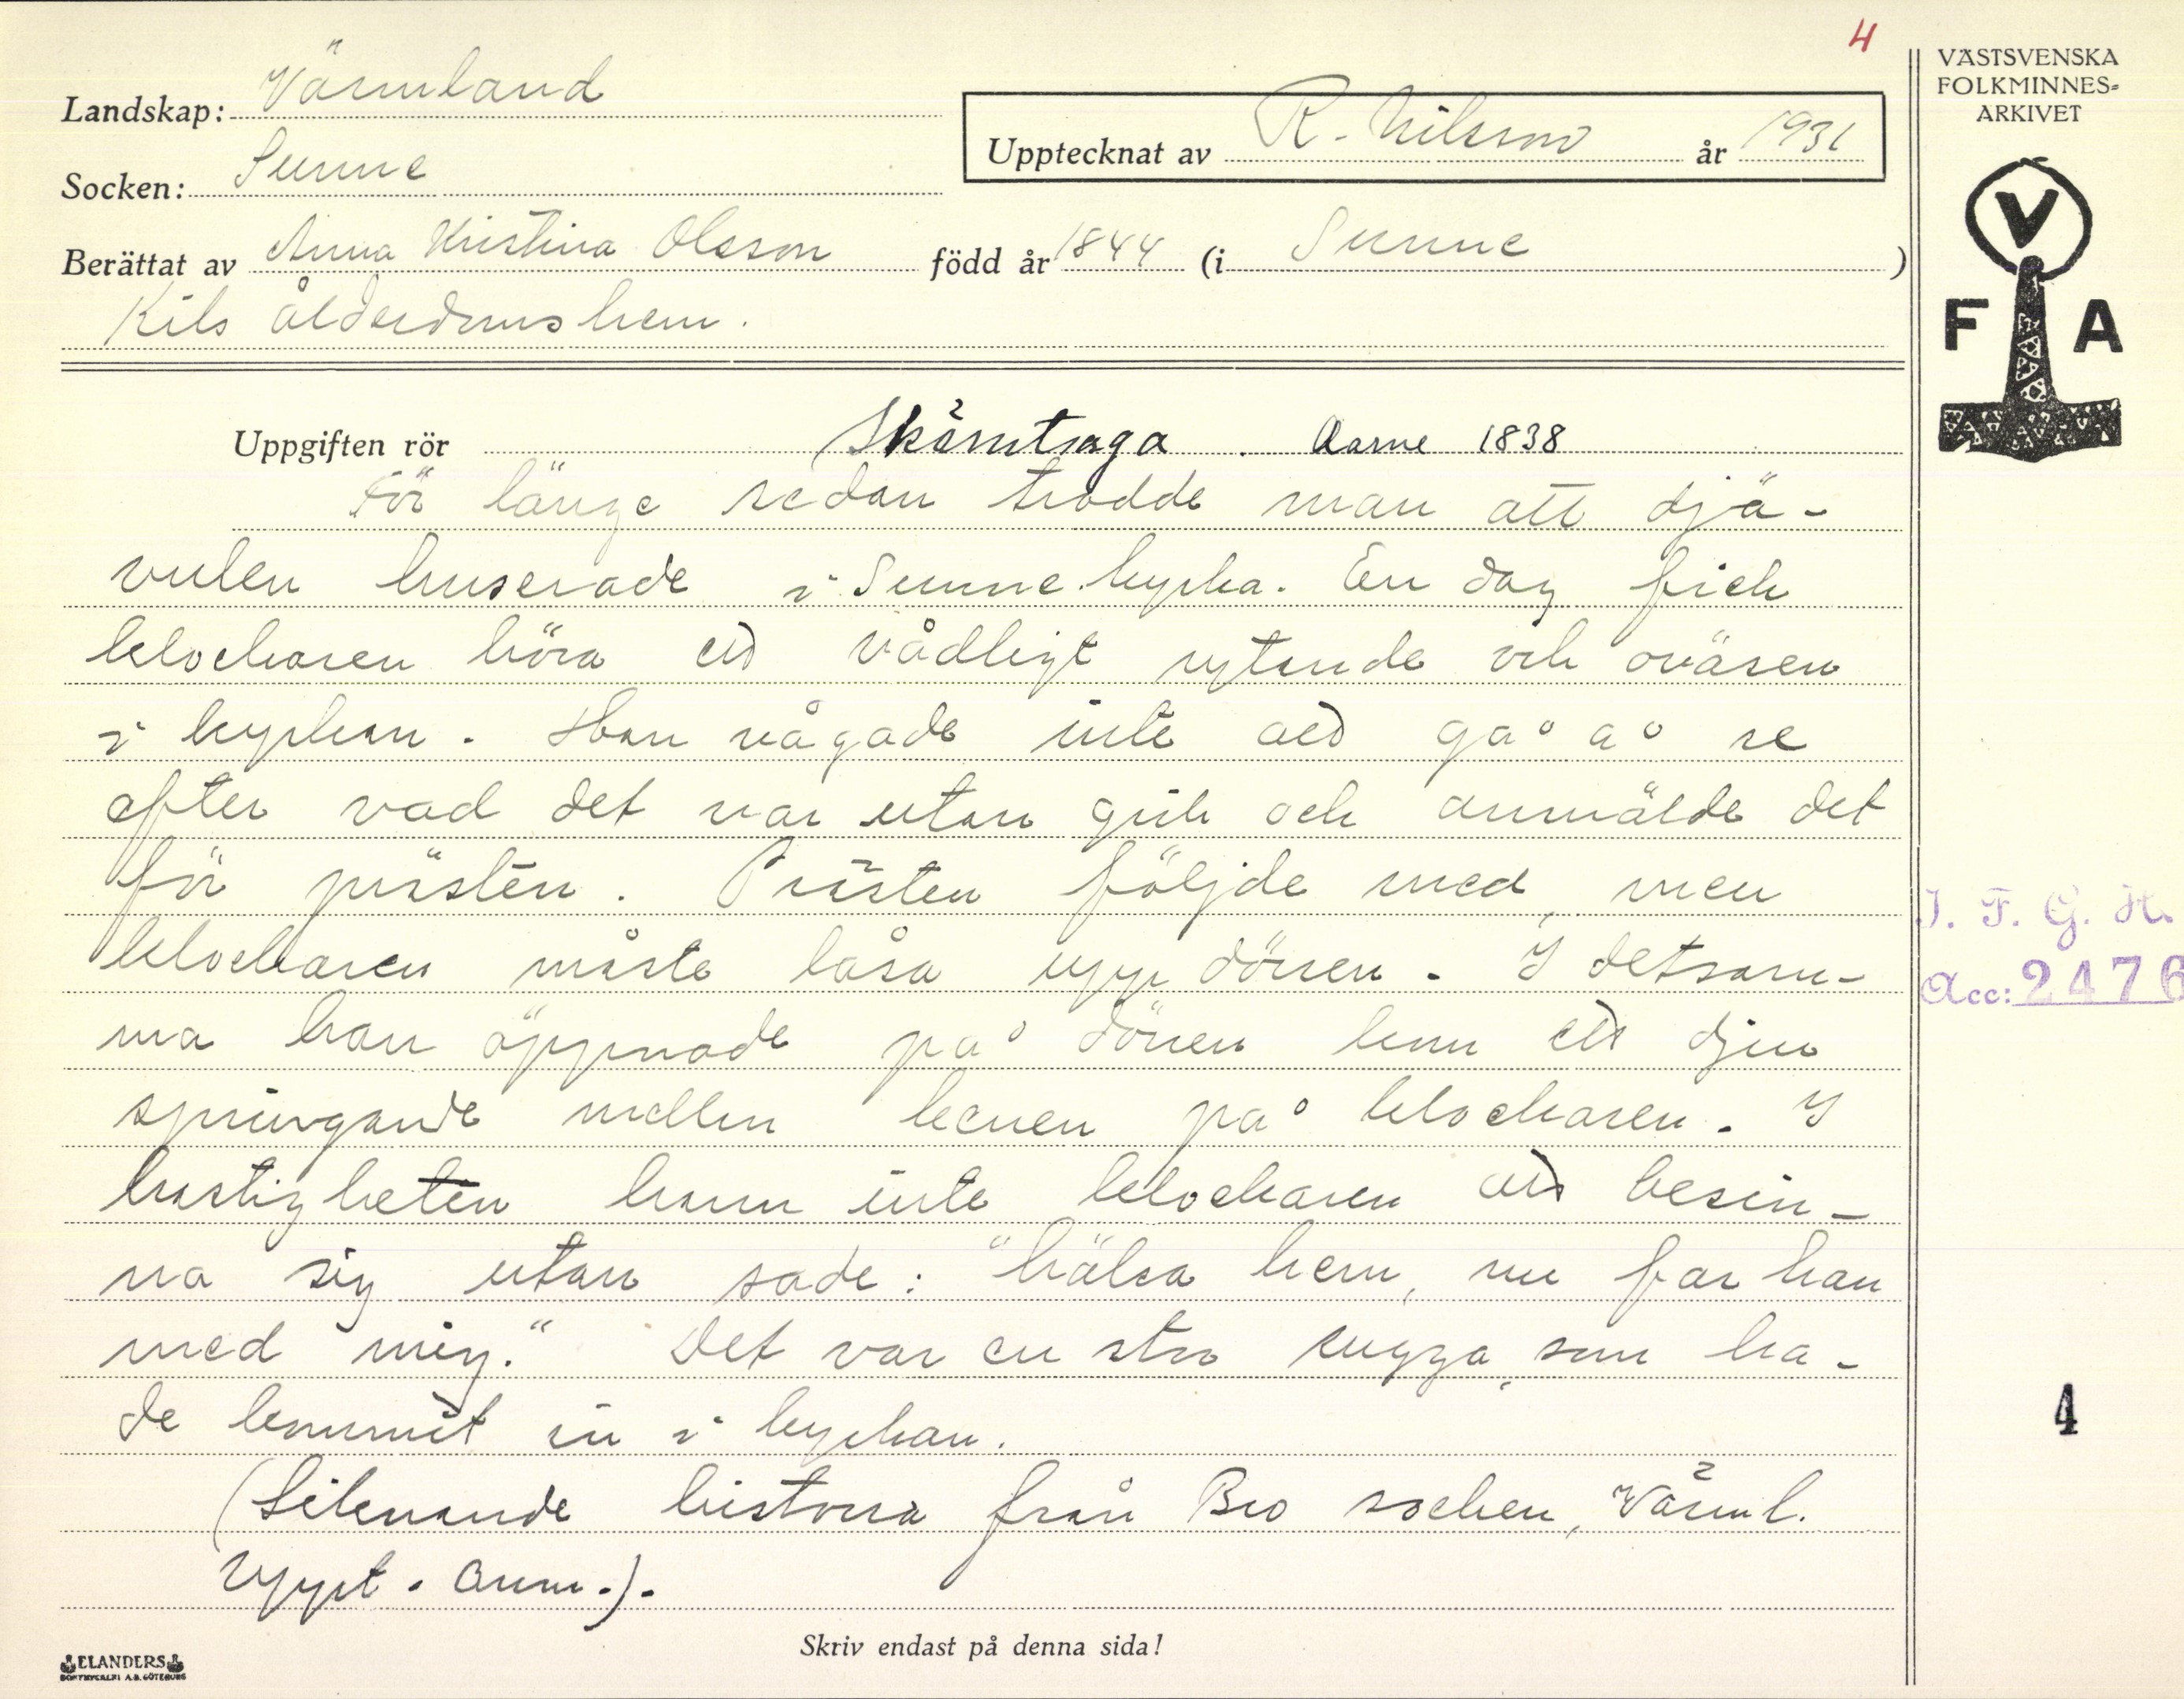 4
VÄSTSVENSKA
FOLKMINNES-
ARKIVET
V
F A
Landskap: Värmland
Upptecknat av R. Nilsson år 1931
Socken: Sunne
Berättat av Anna Kristina Olsson född år 1844 (i Sunne )
Kils ålderdomshem.
Uppgiften rör Skämtsaga. Aarne 1838
För länge sedan trodde man att djä-
vulen huserade i Sunne kyrka. En dag fick
klockaren höra ett vådligt rytande och oväsen
i kyrkan. Han vågade inte att gå å se
efter vad det var utan gick och anmälde det
för prästen. Prästen följde med, men
klockaren måste låsa upp dörren. I detsam-
ma han öppnade på dörren kom ett djur
springande mellan benen på klockaren. I
hastigheten hann inte klockaren att besin-
na sig utan sade: "hälsa hem, nu far han
med mig." Det var en stor sugga, som ha-
de kommit in i kyrkan.
(Liknande historia från Bro socken, Värml.
Uppt. anm.).
I. F. G. H.
Acc: 2476
4
Skriv endast på denna sida!
ELANDERS
BOKTRYCKERI A.B. GÖTEBORG